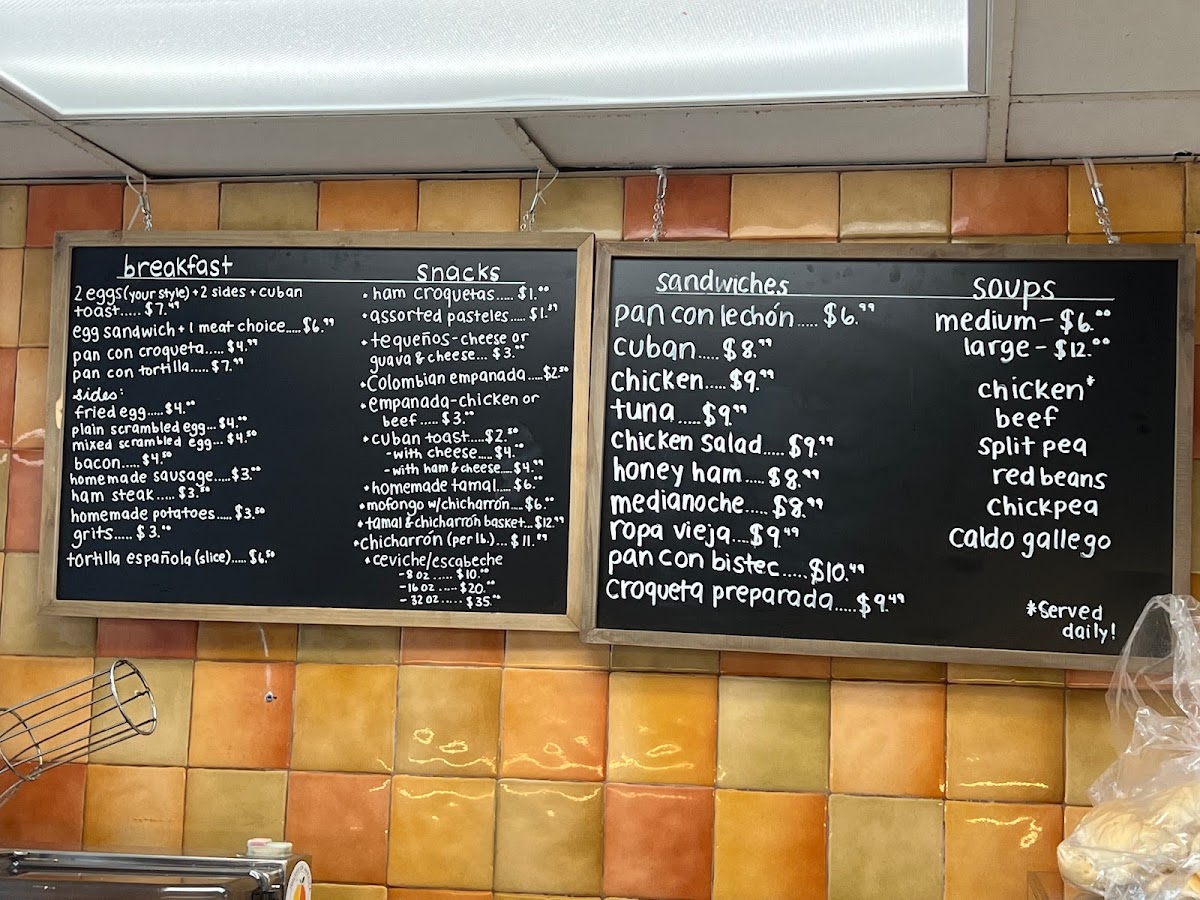 breakfast
2 eggs (your style) + 2 sides + cuban
toast..... $7.49
egg sandwich + 1 meat choice..... $6.99
pan con croqueta..... $4.99
pan con tortilla..... $7.99
sides:
fried egg..... $4.00
plain scrambled egg... $4.00
mixed scrambled egg... $4.50
bacon..... $4.50
homemade sausage..... $3.00
ham steak..... $3.50
homemade potatoes..... $3.50
grits..... $3.00
tortilla española (slice)..... $6.50
snacks
• ham croquetas..... $1.00
• assorted pasteles..... $1.99
• tequeños - cheese or
guava & cheese... $3.00
• Colombian empanada....$2.50
• empanada - chicken or
beef ..... $3.00
• cuban toast.....$2.50
- with cheese..... $4.00
- with ham & cheese.... $4.99
• homemade tamal..... $6.00
• mofongo w/chicharrón..... $6.00
• tamal & chicharrón basket... $12.99
• chicharrón (per lb.)... $11.89
• ceviche/escabeche
- 8 oz ..... $10.00
- 16 oz ..... $20.00
- 32 oz ..... $35.00
sandwiches
pan con lechón..... $6.99
cuban..... $8.99
chicken..... $9.99
tuna..... $9.99
chicken salad.... $9.99
honey ham..... $8.99
medianoche..... $8.99
ropa vieja.... $9.49
pan con bistec..... $10.49
croqueta preparada..... $9.49
soups
medium - $6.00
large - $12.00
chicken*
beef
split pea
red beans
chickpea
caldo gallego
*Served
daily!